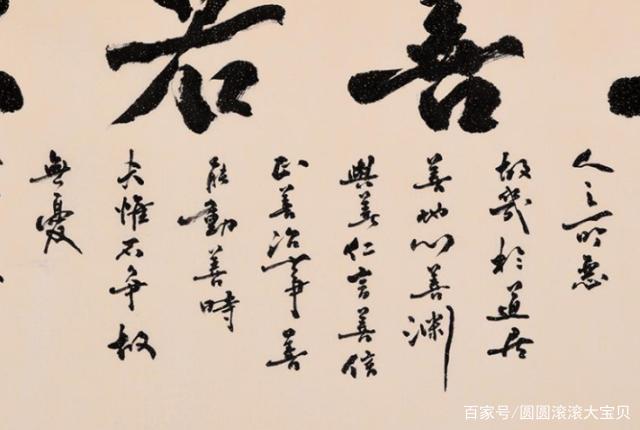 善若
人之所惡
故幾於道居
善地心善淵
與善仁言善信
正善治事善
能動善時
夫惟不争故
無憂
百家号/圆圆滚滚大宝贝